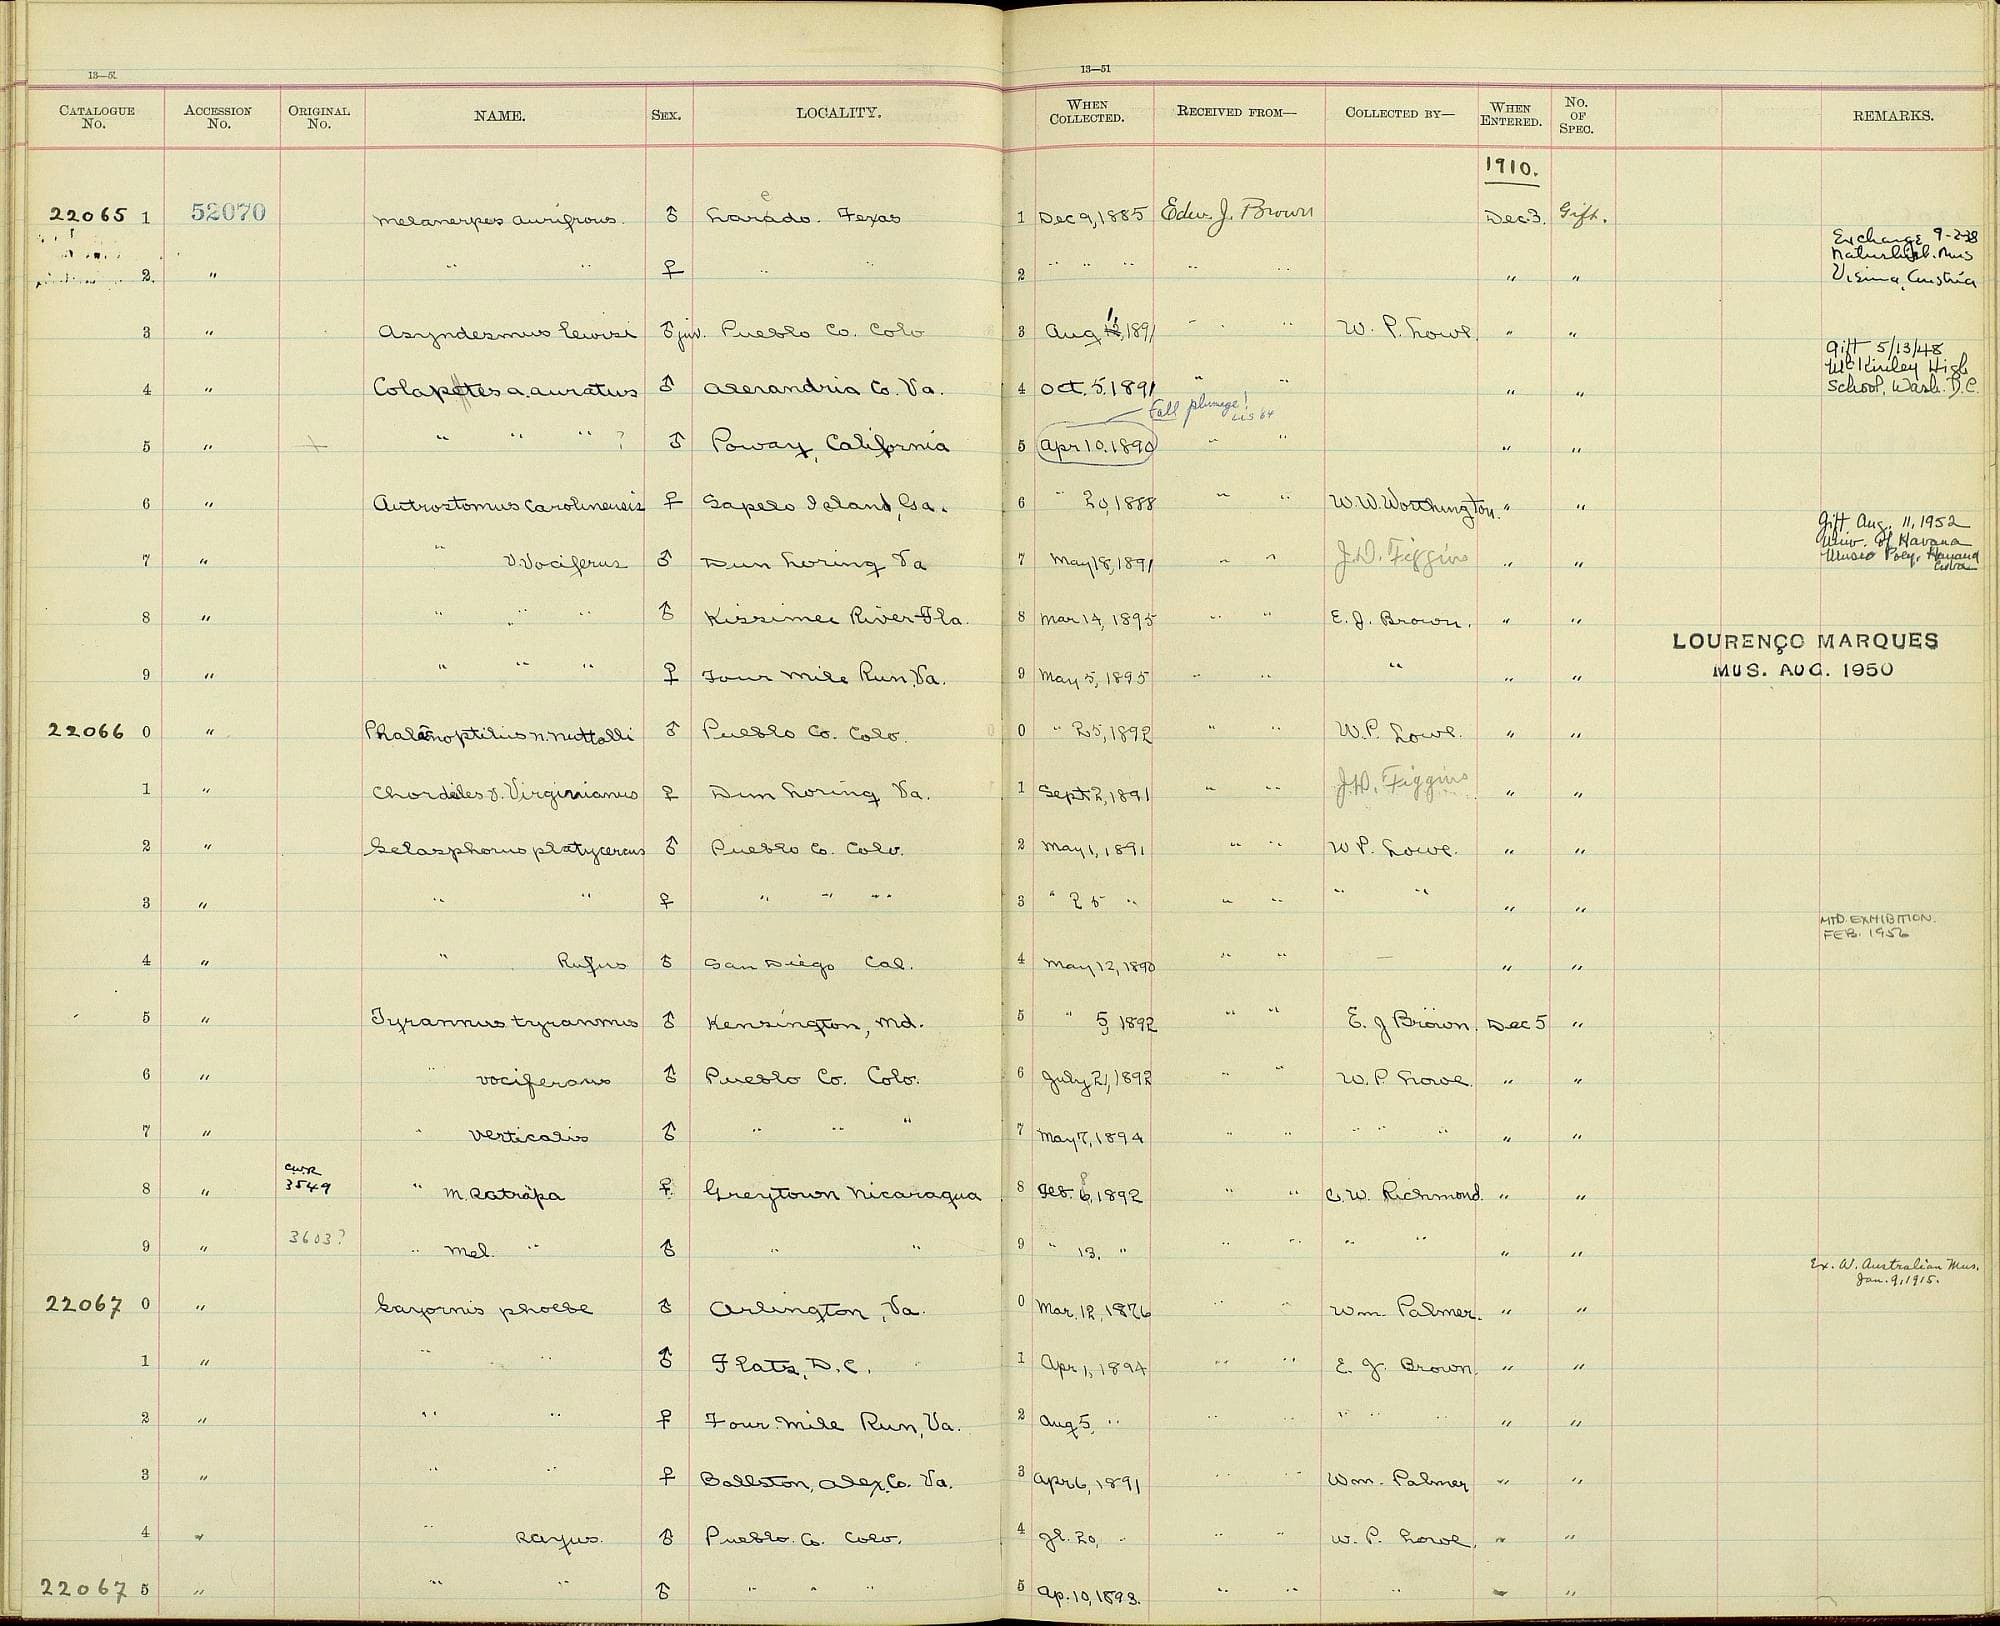 13—51 13—51
CATALOGUE No. ACCESSION No. ORIGINAL No. NAME. SEX. LOCALITY. WHEN COLLECTED. RECEIVED FROM— COLLECTED BY— WHEN ENTERED. No. OF SPEC. REMARKS.
1910.
22065 1 52070 Melanerpes aurifrons. ♂ Larado. Texas e 1 Dec 9, 1885 Edw. J. Brown Dec. 3. Gift.
Exchange 9-2-38
2 " " " ♀ " " 2 " " " " " " " Vienna, Austria
3 " Asyndesmus lewisi ♂ juv. Pueblo Co. Colo 3 Aug 11, 1891 " " W. P. Lowe " "
Gift 5/13/48
McKinley High
4 " Colaptes a. auratus ♂ Alexandria Co. Va. 4 Oct. 5. 1891 " " " " School, Wash. D.C.
Fall plumage!
5 " + " " " ? ♂ Poway, California 5 Apr 10. 1890 " " " "
6 " Antrostomus carolinensis ♀ Sapelo Island, Ga. 6 " 20, 1888 " " W. W. Worthington. " "
Gift Aug. 11, 1952
Univ. of Havana
7 " " v. vociferus ♂ Dun Loring Va 7 May 18, 1891 " " J. D. Figgins " " Museo Poey, Havana
Cuba
8 " " " " ♂ Kissimee River Fla. 8 Mar 14, 1895 " " E. J. Brown. " "
LOURENÇO MARQUES
MUS. AUG. 1950
9 " " " " ♀ Four Mile Run, Va. 9 May 5, 1895 " " " " "
22066 0 " Phalænoptilus n. nuttalli ♂ Pueblo Co. Colo. 0 " 25, 1892 " " W. P. Lowe. " "
1 " Chordeiles v. Virginianus ♀ Dun Loring Va. 1 Sept 2, 1891 " " J. D. Figgins " "
2 " Selasphorus platycercus ♂ Pueblo Co. Colo. 2 May 1, 1891 " " W P. Lowe. " "
3 " " " ♀ " " " 3 " 25 " " " " " " "
MTD. EXHIBITION.
FEB. 1956
4 " " Rufus ♂ San Diego Cal. 4 May 12, 1890 " " — " "
5 " Tyrannus tyrannus ♂ Kensington, Md. 5 " 5, 1892 " " E. J Brown. Dec 5 "
6 " " vociferans ♂ Pueblo Co. Colo. 6 July 21, 1892 " " W. P Lowe. " "
7 " " verticalis ♂ " " " 7 May 7, 1894 " " " " " " "
C.W.R
8 " 3549 " M. satrapa ♀ Greytown Nicaragua 8 Feb. 6, 1892 " " C. W. Richmond. " "
9 " 3603? " Mel. " ♂ " " 9 " 13. " " " " " " "
Ex. W. Australian Mus.
Jan. 9, 1915.
22067 0 " Sayornis phoebe ♂ Arlington, Va. 0 Mar. 12, 1876 " " Wm. Palmer. " "
1 " " " ♂ Flats, D.C. 1 Apr 1, 1894 " " E. J. Brown. " "
2 " " " ♀ Four Mile Run, Va. 2 Aug 5, " " " " " " " "
3 " " " ♀ Ballston, Alex. Co. Va. 3 Apr 6, 1891 " " Wm. Palmer " "
4 " " sayus. ♂ Pueblo. Co. Colo. 4 Jl. 20, " " " W. P. Lowe. " "
22067 5 " " " ♂ " " " 5 Ap. 10, 1893. " " " " "